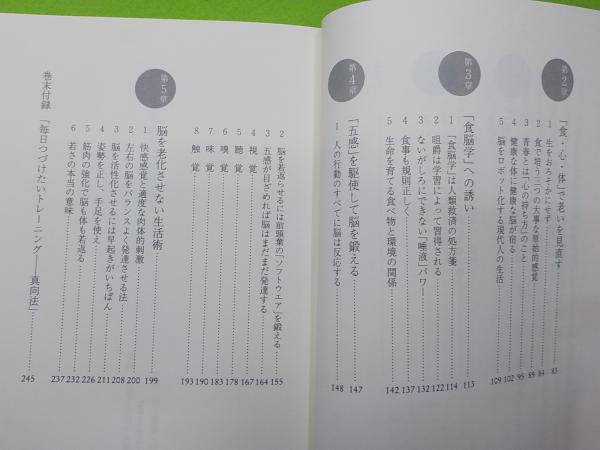 第2章
「食・心・体」で老いを見直す 83
1 生をおろそかにせず 84
2 食で培う三つの大事な原始的感覚 89
3 青春とは「心の持ち方」のこと 95
4 健康な体に健康な脳が宿る 102
5 脳をロボット化する現代人の生活 109
第3章
「食脳学」への誘い 113
1 「食脳学」は人類救済の処方箋 114
2 咀嚼は学習によって習得される 124
3 ないがしろにできない「唾液」パワー 132
4 食事も規則正しく 137
5 生命を育てる食べ物と環境の関係 142
第4章
「五感」を駆使して脳を鍛える 147
1 人の行動のすべてに脳は反応する 148
2 脳を若返らせるには前頭葉の「ソフトウエア」を鍛える 155
3 五感が目ざめれば脳はまだまだ発達する 164
4 視覚 167
5 聴覚 178
6 嗅覚 183
7 味覚 190
8 触覚 193
第5章
脳を老化させない生活術 199
1 快感感覚と適度な肉体的刺激 200
2 左右の脳をバランスよく発達させる法 208
3 脳を活性化させるには早起きがいちばん 211
4 姿勢を正し、手足を使え 226
5 筋肉の強化で脳も体も若返る 232
6 若さの本当の意味 237
巻末付録 「毎日つづけたいトレーニング——真向法」 245